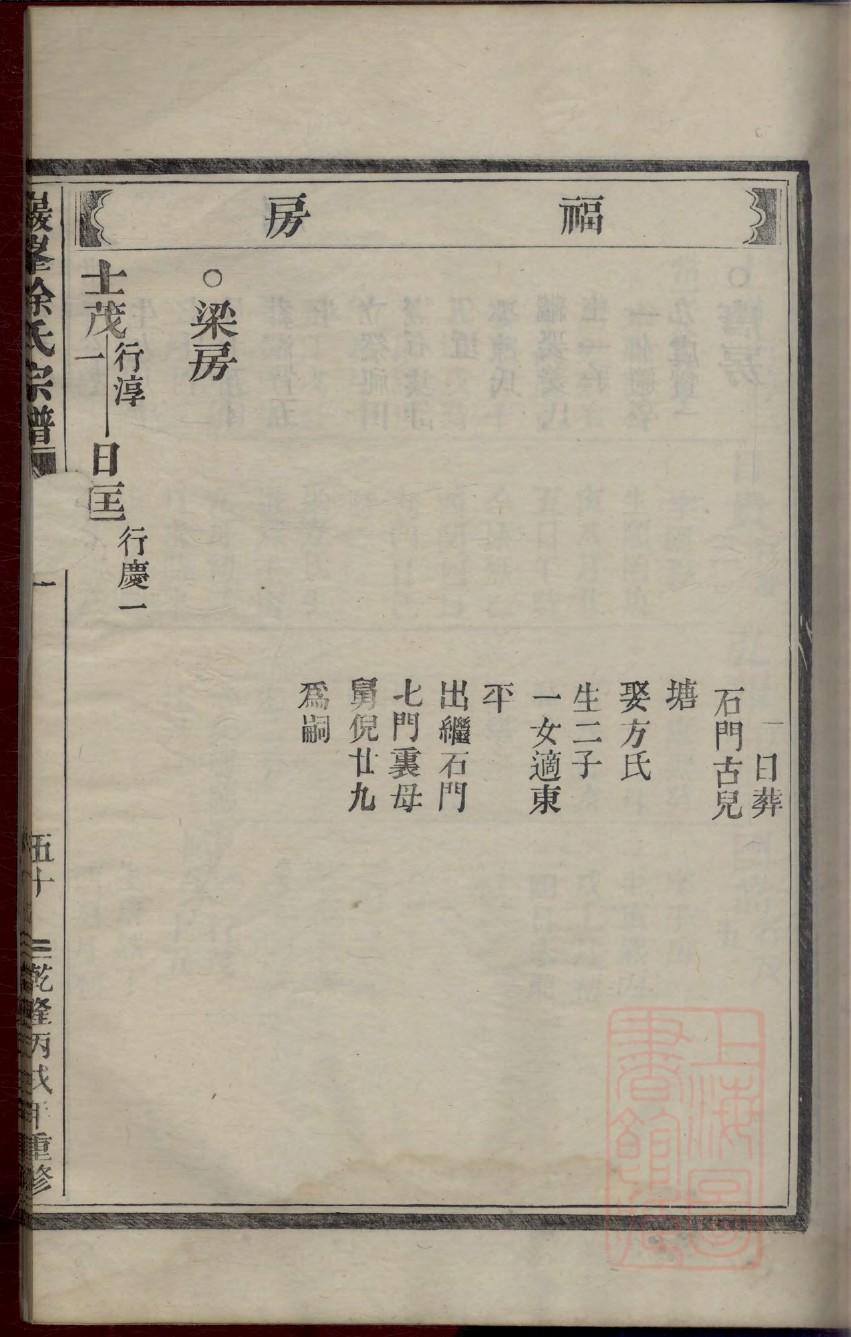 福房
一日葬
石門古兒
塘
娶方氏
生二子
一女適東
平
出繼石門
七門裏母
舅倪廿九
爲嗣
○梁房
士茂 行淳一 日匡 行慶一
巖峯徐氏宗譜
一
五十
乾隆丙戌年重修
上海圖書館藏